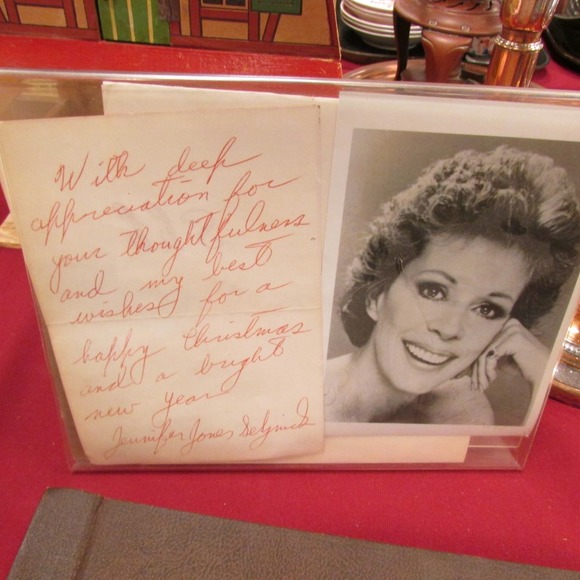 With deep
appreciation for
your thoughtfulness
and my best
wishes for a
happy Christmas
and a bright
new year
Jennifer Jones Selznick